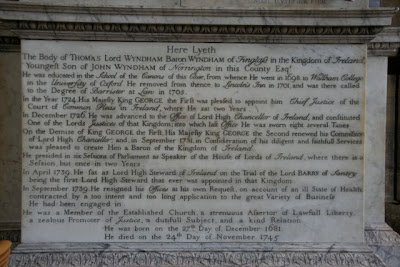 Here Lyeth
The Body of THOMAS Lord WYNDHAM Baron WYNDHAM of Finglass in the Kingdom of Ireland
Youngest Son of JOHN WYNDHAM of Norrington in this County Esqr
He was educated in the School of the Canons of this Close, from whence He went in 1698 to Wadham College
in the University of Oxford He removed from thence to Lincoln's Inn in 1701, and was there called
to the Degree of Barrister at Law in 1705.
In the Year 1724, His Majesty KING GEORGE the First was pleased to appoint him Chief Justice of the
Court of Common Pleas in Ireland, where He sat two Years
In December 1726, He was advanced to the Office of Lord High Chancellor of Ireland, and constituted
One of the Lords Justices of that Kingdom, into which high Office He was sworn eight several Times
On the Demise of KING GEORGE the First, His Majesty KING GEORGE the Second renewed his Commission
of Lord High Chancellor and in September 1731, in Consideration of his diligent and faithful Services
was pleased to create Him a Baron of the Kingdom of Ireland
He presided in six Sessions of Parliament as Speaker of the House of Lords of Ireland, where there is a
Session but once in two Years
In April 1739, He sat as Lord High Steward of Ireland on the Trial of the Lord BARRY of Santry
being the first Lord High Steward that ever was appointed in that Kingdom
In September 1739, He resigned his Offices at his own Request, on account of an ill State of Health
contracted by a too intent and too long application to the great Variety of Business
He had been engaged in
He was a Member of the Established Church, a strenuous Assertor of Lawfull Liberty,
a zealous Promoter of Justice, a dutifull Subject and a kind Relation.
He was born on the 27th Day of December 1681
He died on the 24th Day of November 1745